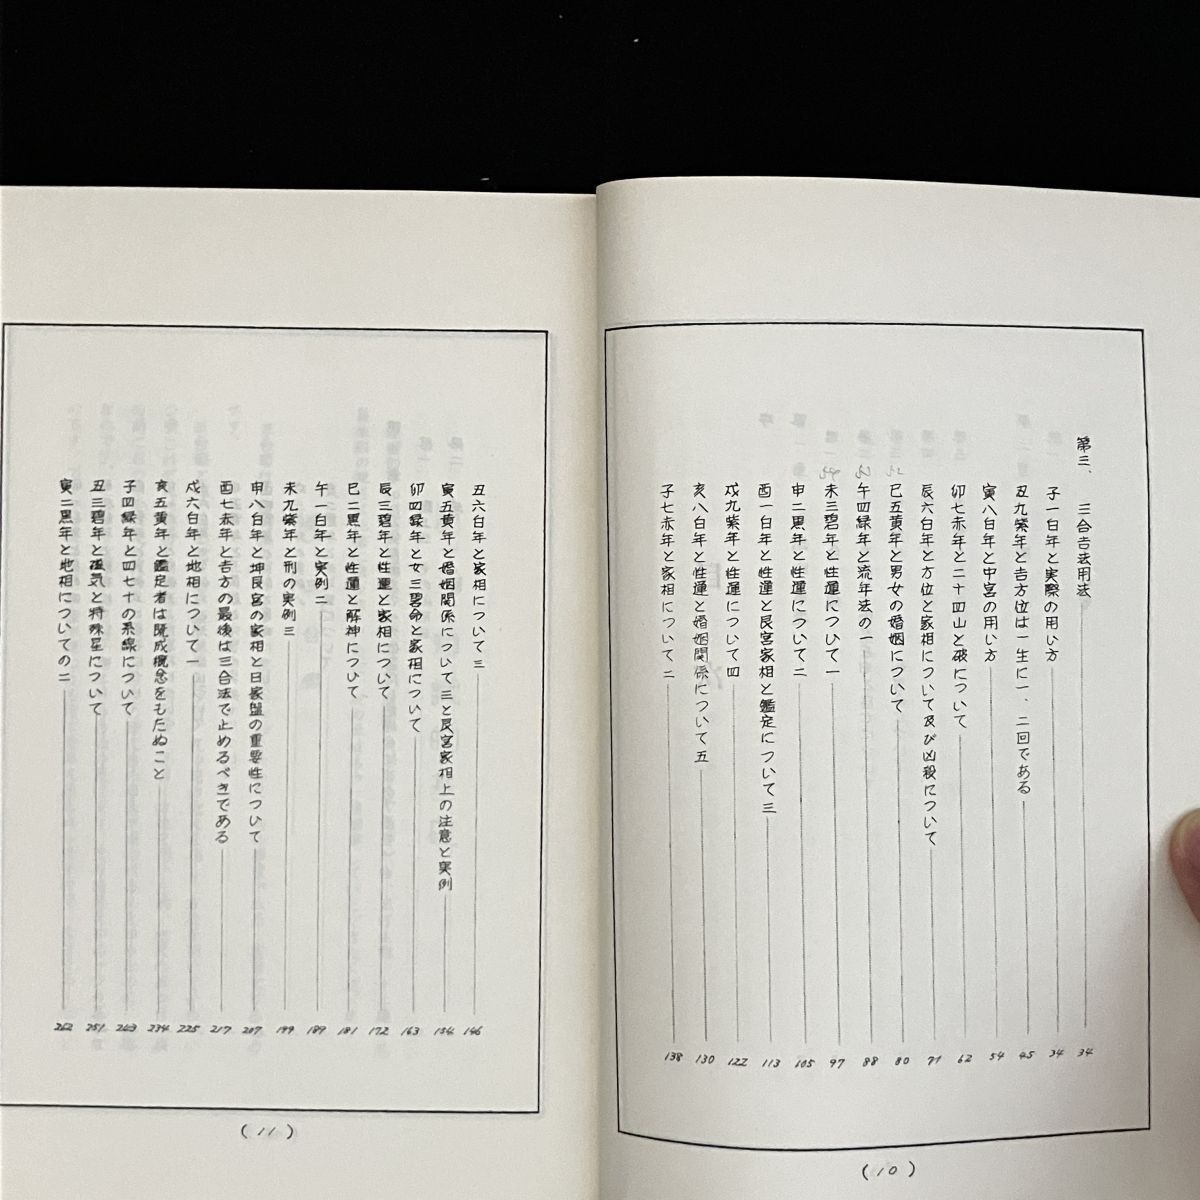 第三、三合吉法用法 34
子一白年と実際の用い方 34
丑九紫年と吉方位は一生に一、二回である 45
寅八白年と中宮の用い方 54
卯七赤年と二十四山と破について 62
辰六白年と方位と家相について及び凶殺について 71
巳五黄年と男女の婚姻について 80
午四緑年と流年法の一 88
未三碧年と性運について一 97
申二黒年と性運について二 105
酉一白年と性運と艮宮家相と鑑定について三 113
戌九紫年と性運について四 122
亥八白年と性運と婚姻関係について五 130
子七赤年と家相について二 138
(10)
丑六白年と家相について三 146
寅五黄年と婚姻関係について三と艮宮家相上の注意と実例 154
卯四緑年と女三碧命と家相について 163
辰三碧年と性運と家相について 172
巳二黒年と性運と解神について 181
午一白年と実例二 189
未九紫年と刑の実例三 199
申八白年と坤艮宮の家相と日家盤の重要性について 207
酉七赤年と吉方の最後は三合法で止めるべきである 217
戌六白年と地相について一 225
亥五黄年と鑑定者は既成概念をもたぬこと 234
子四緑年と四七十の系線について 243
丑三碧年と磁気と特殊星について 251
寅二黒年と地相についての二 262
(11)